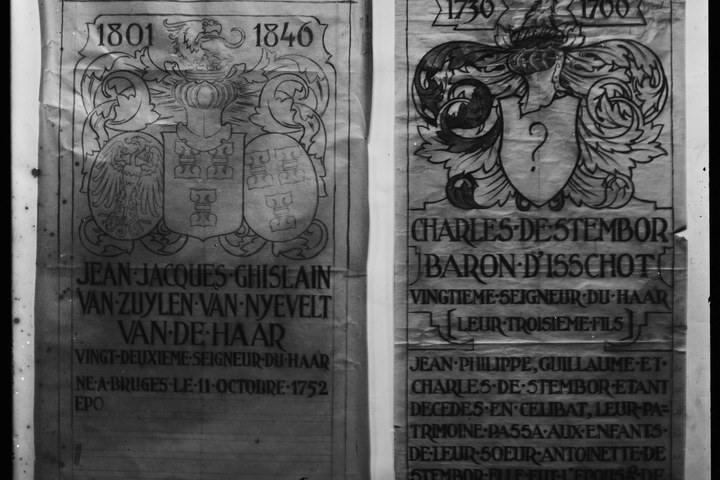 1801 1846
JEAN·JACQUES·GHISLAIN
VAN·ZUYLEN·VAN·NYEVELT
VAN·DE·HAAR
VINGT·DEUXIEME·SEIGNEUR·DU·HAAR
NE·A·BRUGES·LE·11·OCTOBRE·1752
EPO
1730 1760
?
CHARLES·DE·STEMBOR
BARON·D'ISSCHOT
VINGTIEME·SEIGNEUR·DU·HAAR
[LEUR·TROISIEME·FILS]
JEAN·PHILIPPE, GUILLAUME·ET·
CHARLES·DE·STEMBOR·ETANT
DECEDES·EN·CELIBAT, LEUR·PA=
TRIMOINE·PASSA·AUX·ENFANTS·
DE·LEUR·SOEUR·ANTOINETTE·DE
STEMBOR·ELLE·FUT·L'EPOUSE·DE